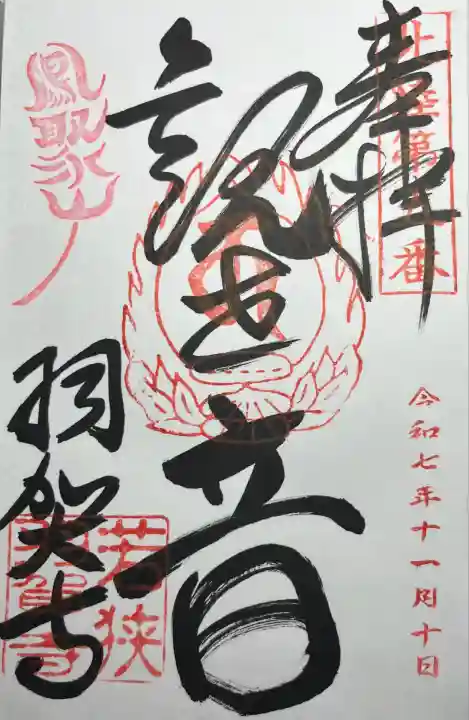 北陸第五番
奉拝
令和七年十一月十日
観世音
鳳聚山
羽賀寺
若狭
羽賀寺